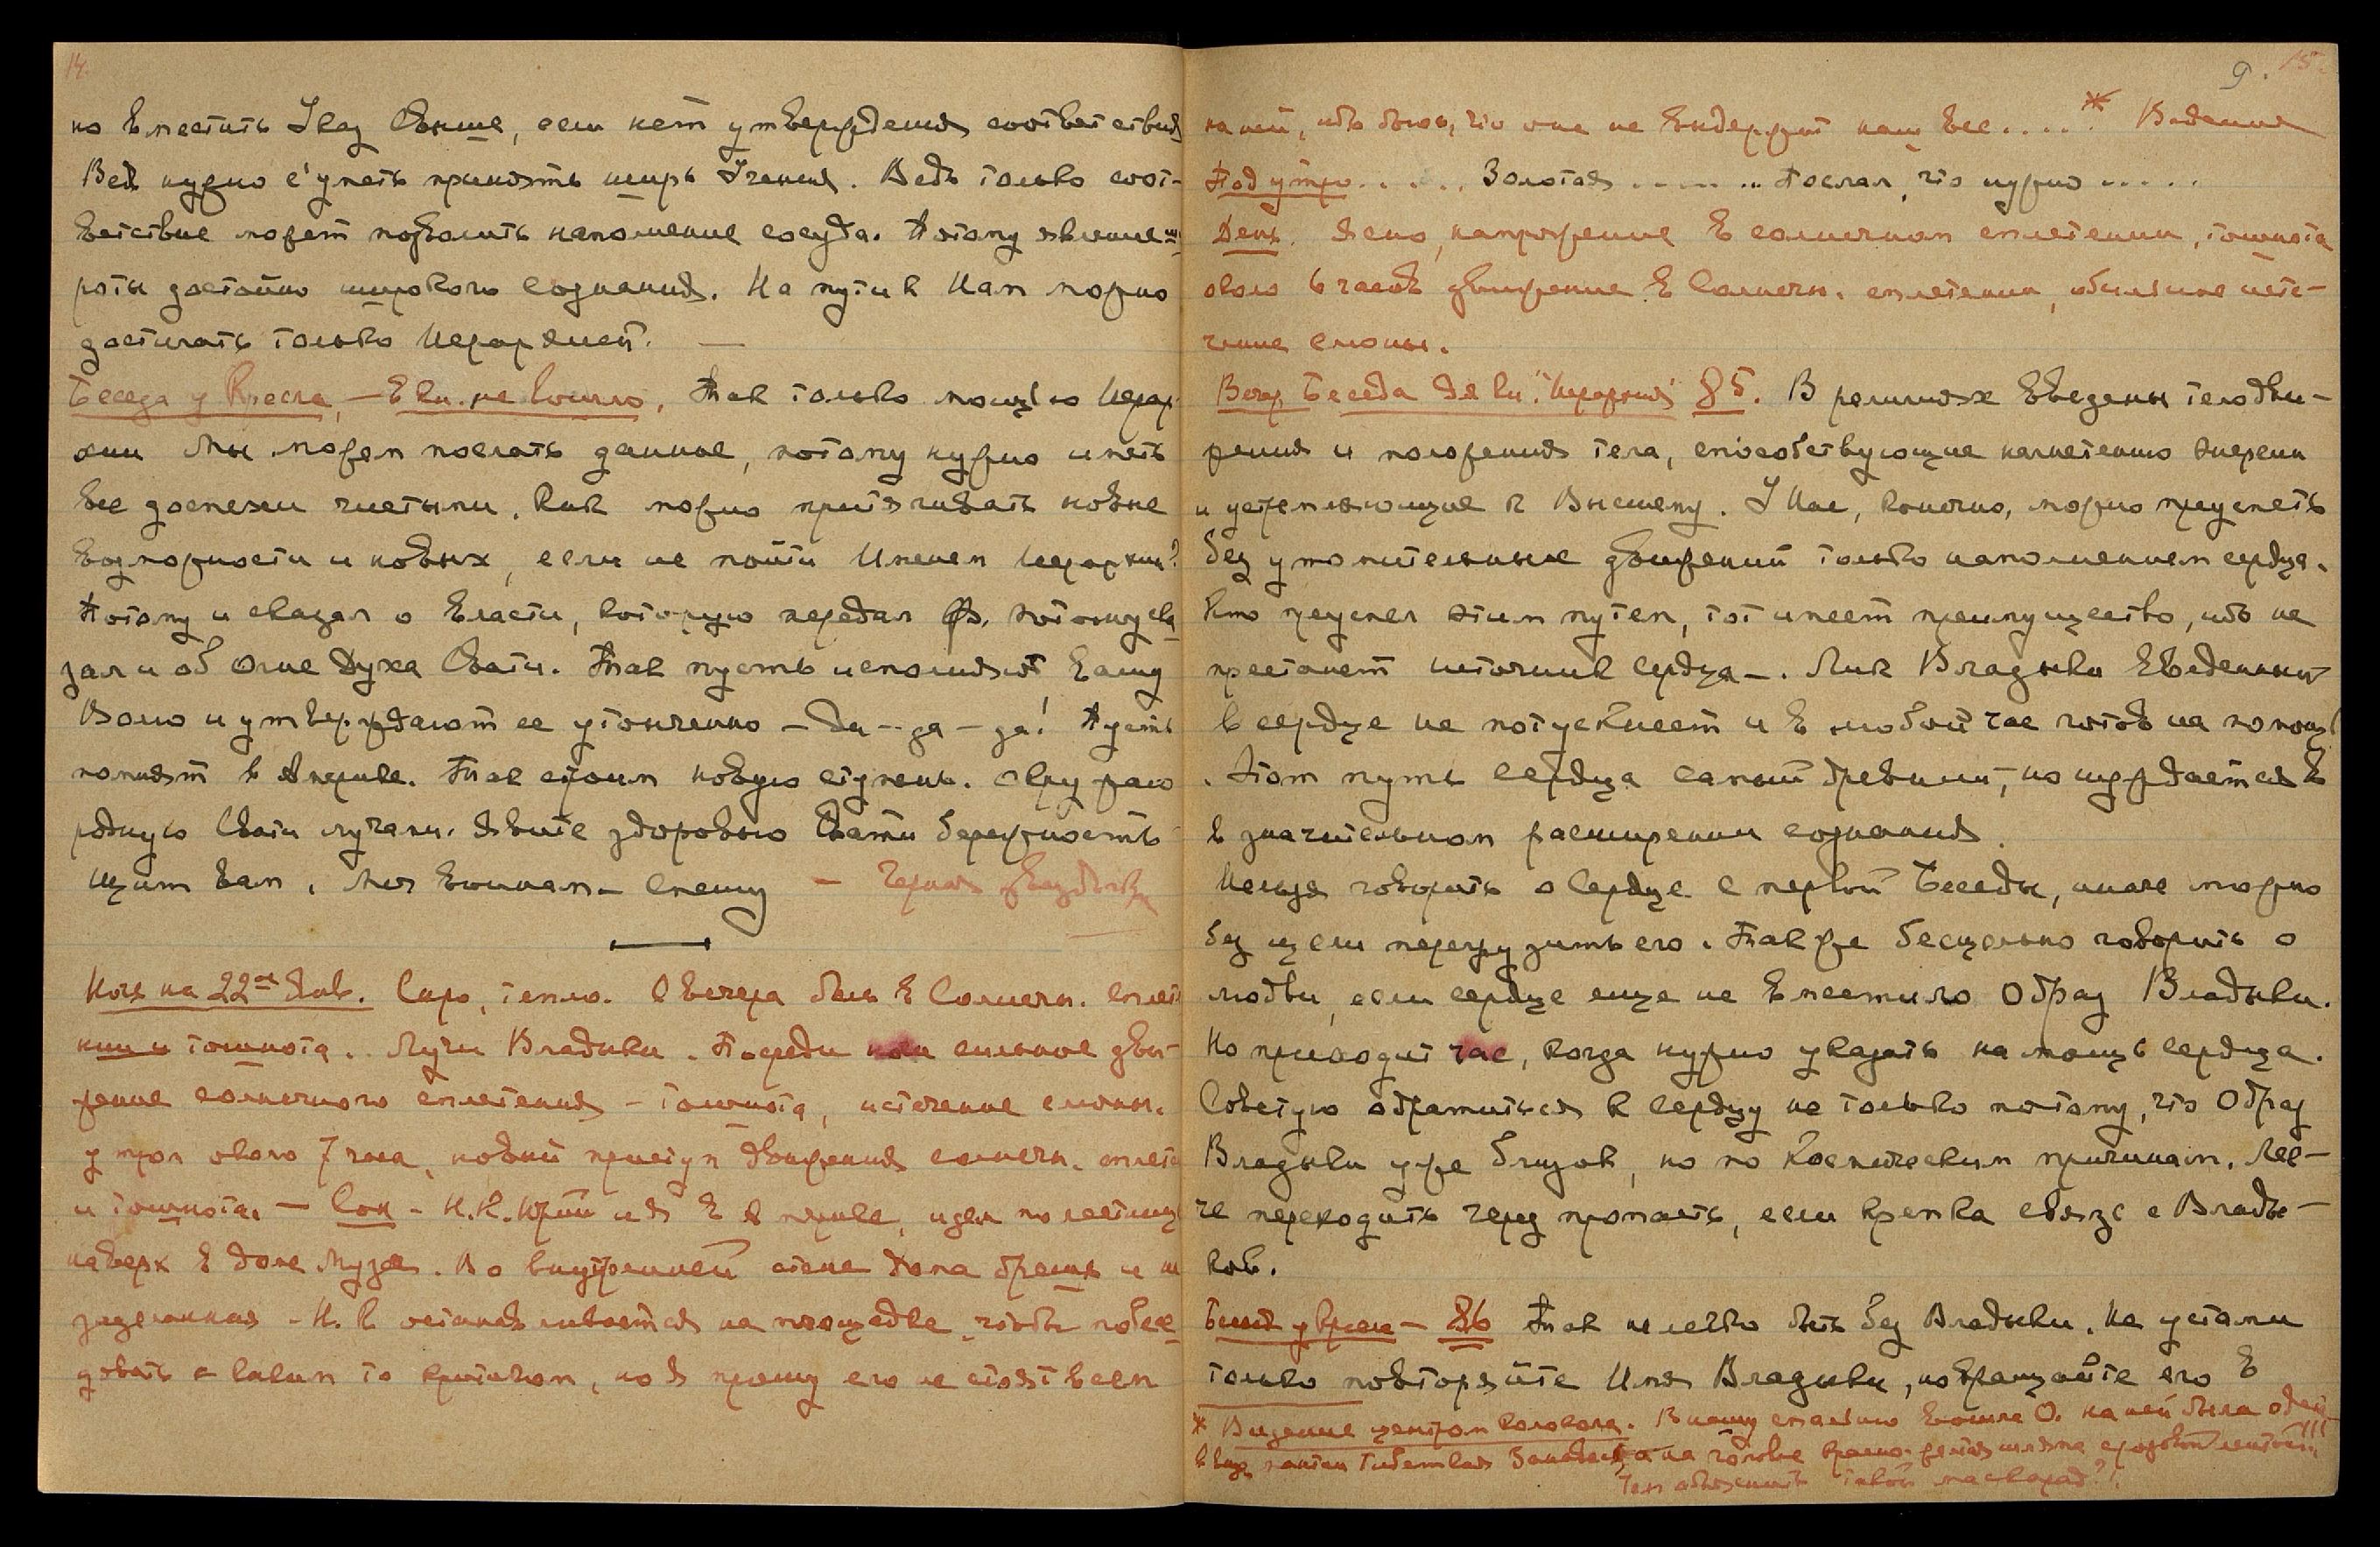 14.
но вместить Указ Свыше, если нет утверждения соответствия
Ведь нужно с'уметь принять ширь Учения. Ведь только соот-
ветствие может позволить наполнение сосуда. Потому явление ши
роты достойно широкого сознания. На пути к Нам можно
достигать только Иерархией. —
Беседа у Кресла, — В кн. не вошло. Так только мощью Иерар
хии Мы можем послать данное, потому нужно иметь
все доспехи чистыми. Как можно притягивать новые
возможности и новых, если не пойти Именем Иерархии?
Потому и сказал о власти, которую передал Ф. Потому ска
зал и об Огне Духа Свати. Так пусть исполняют вашу
Волю и утверждают ее утонченно — да — да — да! Пусть
помнят в Америке. Так строим новую ступень. Окружаю
родную Свати лучами. Явите здоровью Свати бережность
Щит вам. Мы внимаем — Спешу — Черная звезда
Ночь на 22ое Янв. Сыро, тепло. С вечера боль в Солнечн. сплет
нии и тошнота. Лучи Владыки. Посреди ночи сильное дви-
жение солнечного сплетения — тошнота, истечение слюны.
утром около 7 часа, новый приступ движения солнечн. сплет
и тошнота. — Сон — Н.К. Юрий и я в Америке, идем по лестнице
наверх в доме Музея. Во внутренней стене дома брешь и
заделанная — Н.К. останавливается на площадке, чтобы побесе
довать с каким то критиком, но я прошу его не стоять всем
9. 15.
на ней, ибо боюсь, что она не выдержит нас всех....* Видения
Под утро..... Золотая ....... Послал, что нужно .....
День. Ясно, напряжение в солнечном сплетении, тошнота
около 6 часов движение в Солнечн. сплетении, обильное исте-
чение слюны.
Вечер Беседа Для кн. "Иерархия" §5. В религиях введены телодви-
жения и положения тела, способствующие нагнетению энергии
и устремляющие к Высшему. У Нас, конечно, можно преуспеть
без утомительных движений только наполнением сердца.
Кто преуспел этим путем, тот имеет преимущество, ибо не
престанет источник сердца —. Лик Владыки введенный
в сердце не потускнеет и в любой час готов на помощь
. Этот путь сердца самый древний, но нуждается в
в значительном расширении сознания.
Нельзя говорить о Сердце с первой Беседы, иначе можно
без цели перегрузить его. Также бесцельно говорить о
любви, если сердце еще не вместило Образ Владыки.
Но приходит час, когда нужно указать на мощь сердца.
Советую обратиться к сердцу не только потому, что Образ
Владыки уже близок, но по космическим причинам. Лег-
че переходить через пропасть, если крепка связь с Влады-
кой.
Беседа у кресла — §6 Так нелегко быть без Владыки. Не устами
только повторяйте Имя Владыки, но вращайте его в
* Видение центром колокола. В нашу спальню вошла О. на ней была одета
в виде мантии Тибетская Занавесь, а на голове шляпа с розовой лентой!!!
Чем объяснить такой маскарад?!